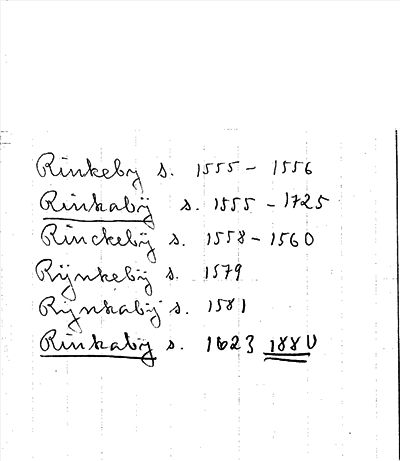 Rinkeby s. 1555 - 1556
Rinkabÿ s. 1555 - 1725
Rinckebÿ s. 1558 - 1560
Rÿnkebÿ s. 1579
Rijnkabÿ s. 1581
Rinkaby s. 1623 1880